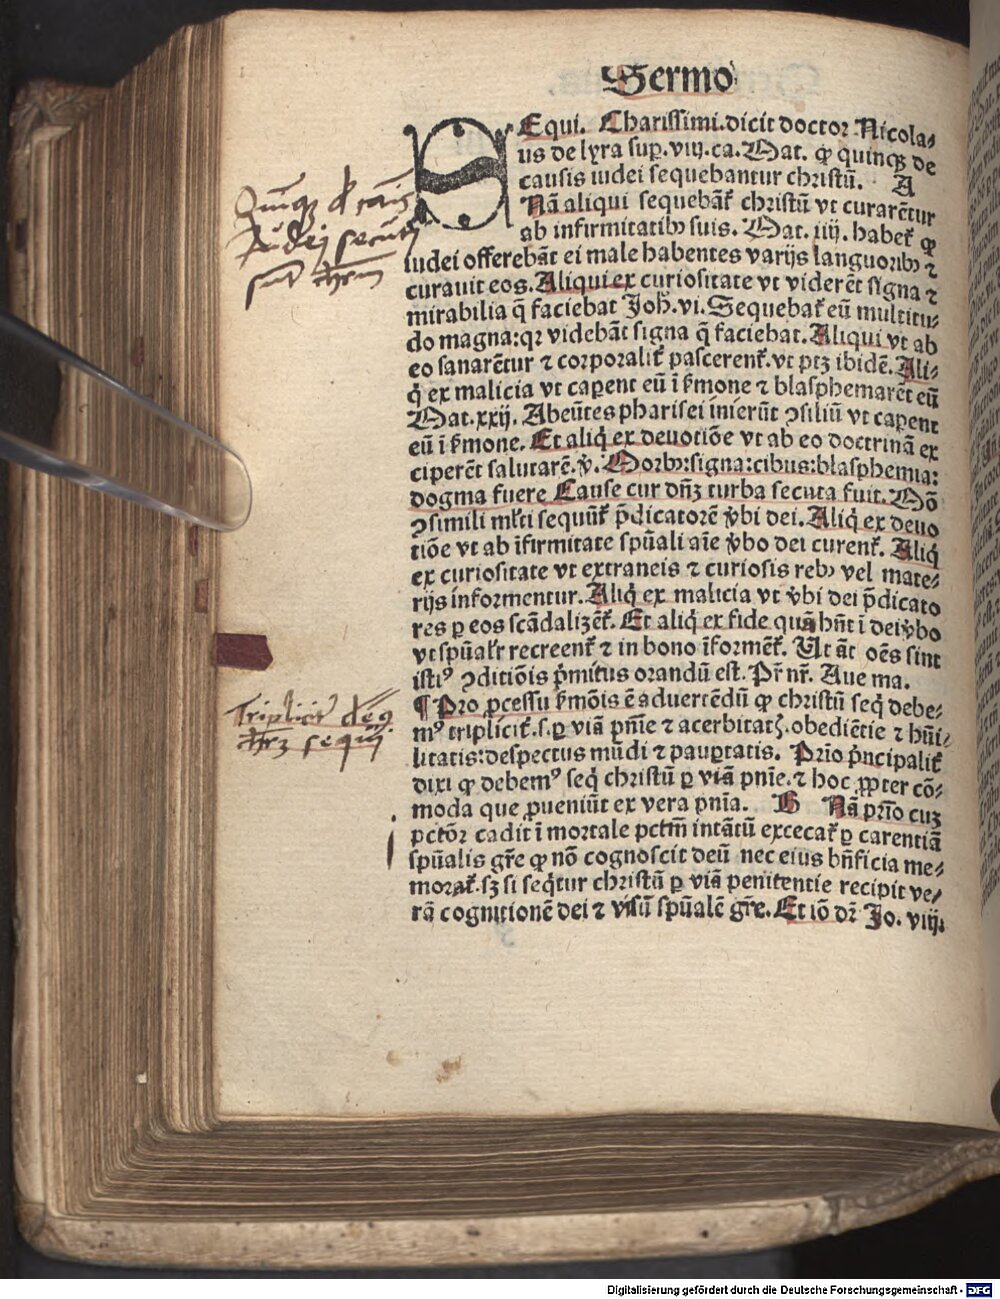 Sermo
SEqui. Chariſſimi. dicit doctor Nicola⸗
us de lyra ſup. viij. ca. Mat. ꝙ quinqꝫ de
cauſis iudei ſequebantur chriſtū. A
Nā aliqui ſequebāt̉ chriſtū vt curarētur
ab infirmitatibꝰ ſuis. Mat. iiij. habet̉ ꝙ
iudei offerebāt ei male habentes varijs languoribꝰ ⁊
curauit eos. Aliqui ex curioſitate vt viderēt ſigna ⁊
mirabilia q̄ faciebat Joh̄. vi. Sequebat̉ eū multitu⸗
do magna: qꝛ videbāt ſigna q̄ faciebat. Aliqui vt ab
eo ſanarētur ⁊ corporalit̉ paſcerent̉. vt ptꝫ ibidē. Ali⸗
q̇ ex malicia vt caperent eū ī ẜmone ⁊ blaſphemarēt eū
Mat. xxij. Abeūtes phariſei inierūt ꝯſiliū vt caperent
eū ī ẜmone. Et aliq̇ ex deuotiōe vt ab eo doctrinā ex
ciperēt ſalutarē. v̉. Morbꝰ: ſigna: cibus: blaſphemia:
dogma fuere Cauſe cur dn̄ꝫ turba ſecuta fuit. Mō
ꝯſimili ml̉ti ſequūt̉ p̄dicatorē v̉bi dei. Aliq̇ ex deuo
tiōe vt ab īfirmitate ſpūali aīe v̉bo dei curent̉. Aliq̇
ex curioſitate vt extraneis ⁊ curioſis rebꝰ vel mate⸗
rijs informentur. Aliq̇ ex malicia vt v̉bi dei p̄dicato
res ꝑ eos ſcādalizēt̉. Et aliq̇ ex fide quā hn̄t ī dei v̉bo
vt ſpūalr̉ recreent̉ ⁊ in bono īformēt̉. Ut āt oēs ſint
iſtiꝰ ꝯditiōis p̄mitus orandū eſt. Pr̄ nr̄. Aue ma.
¶ Pro ꝓceſſu ẜmōis ē aduertēdū ꝙ chriſtū ſeq̇ debe⸗
mꝰ triplicit̉. ſ. ꝑ viā pn̄ie ⁊ acerbitatꝭ. obediētie ⁊ hūi⸗
litatis: deſpectus mūdi ⁊ paupertatis. Prīo p̄ncipalit̉
dixi ꝙ debemꝰ ſeq̇ chriſtū ꝑ viā pn̄ie. ⁊ hoc ꝓpter cō⸗
moda que ꝓueniūt ex vera pn̄ia. B Nā prīo cuꝫ
pctōr cadit ī mortale pctm̄ intātū excecat̉ ꝑ carentiā
ſpūalis gr̄e ꝙ nō cognoſcit deū nec eius bn̄ficia me⸗
morat̉. ſꝫ ſi ſeq̇tur chriſtū ꝑ viā penitentie recipit ve⸗
rā cognitionē dei ⁊ viſū ſpūalē gr̄e. Et iō dr̄ Jo. viij.
Quinqꝫ de cauſis
Judei ſecuti
ſunt chr̄m
Tripliciter deus
chr̄ꝫ ſequi
Digitalisierung gefördert durch die Deutsche Forschungsgemeinschaft - DFG